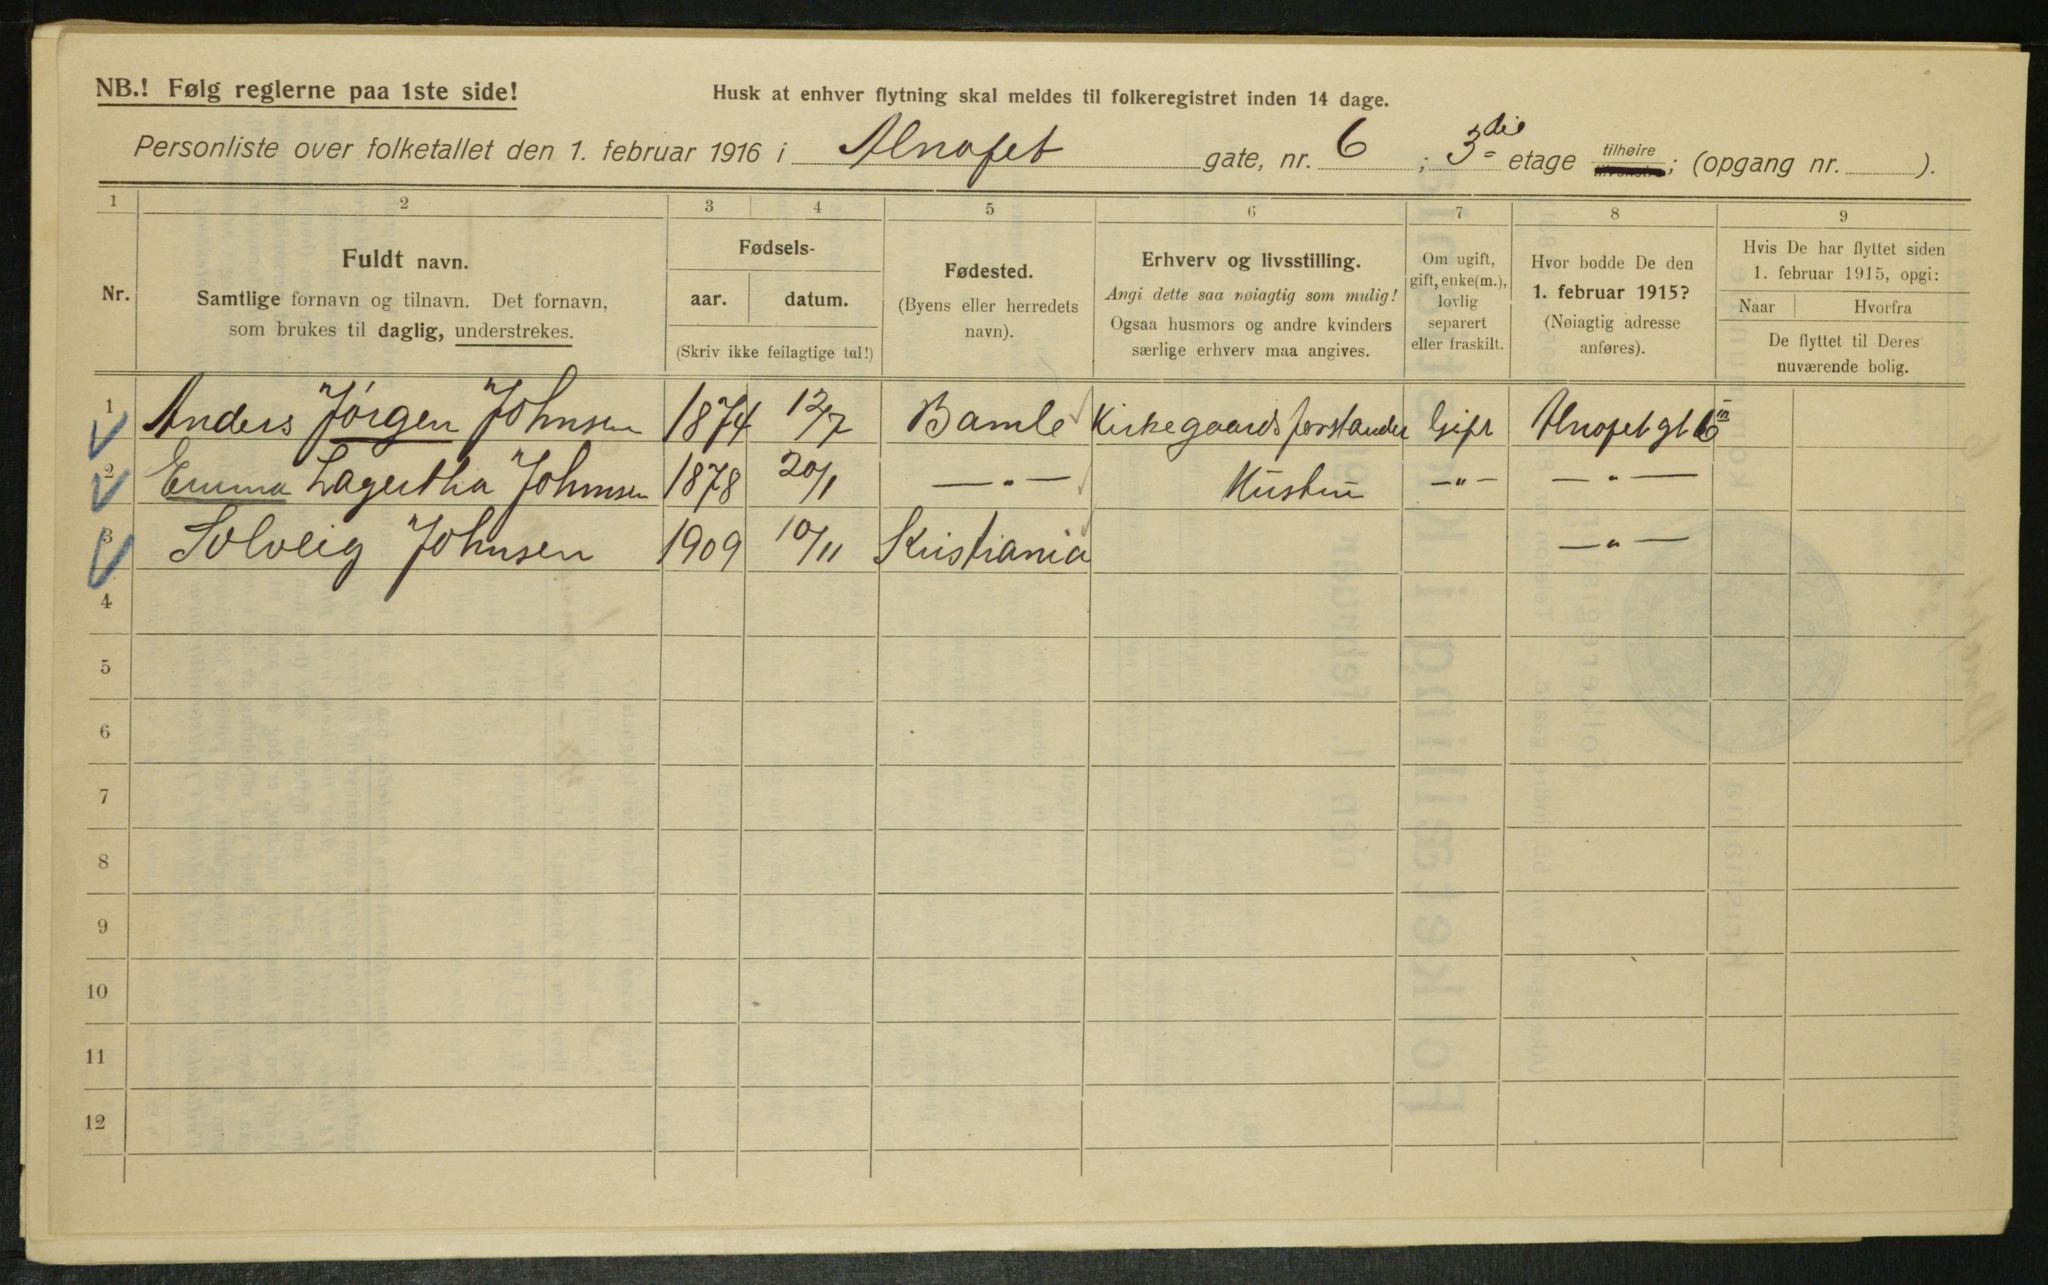 NB.! Følg reglerne paa 1ste side!
Husk at enhver flytning skal meldes til folkeregistret inden 14 dage.
Personliste over folketallet den 1. februar 1916 i Alnafet gate, nr. 6 ; 3die etage tilhøire tilvenstre; (opgang nr. ).
1 2 3 4 5 6 7 8 9
Nr.
Fuldt navn.
Samtlige fornavn og tilnavn. Det fornavn,
som brukes til daglig, understrekes.
Fødsels-
aar. datum.
(Skriv ikke feilagtige tal!)
Fødested.
(Byens eller herredets
navn).
Erhverv og livsstilling.
Angi dette saa nøiagtig som mulig!
Ogsaa husmors og andre kvinders
særlige erhverv maa angives.
Om ugift,
gift, enke(m.),
lovlig
separert
eller fraskilt.
Hvor bodde De den
1. februar 1915?
(Nøiagtig adresse
anføres).
Hvis De har flyttet siden
1. februar 1915, opgi:
Naar Hvorfra
De flyttet til Deres
nuværende bolig.
1 Anders Jørgen Johnsen 1874 12/7 Bamle Kirkegaardsforstander Gift Alnafetgt 6 III
2 Emma Lagertha Johnsen 1878 20/1 —„— Hustru —„— —„—
3 Solveig Johnsen 1909 10/11 Kristiania —„—
4
5
6
7
8
9
10
11
12